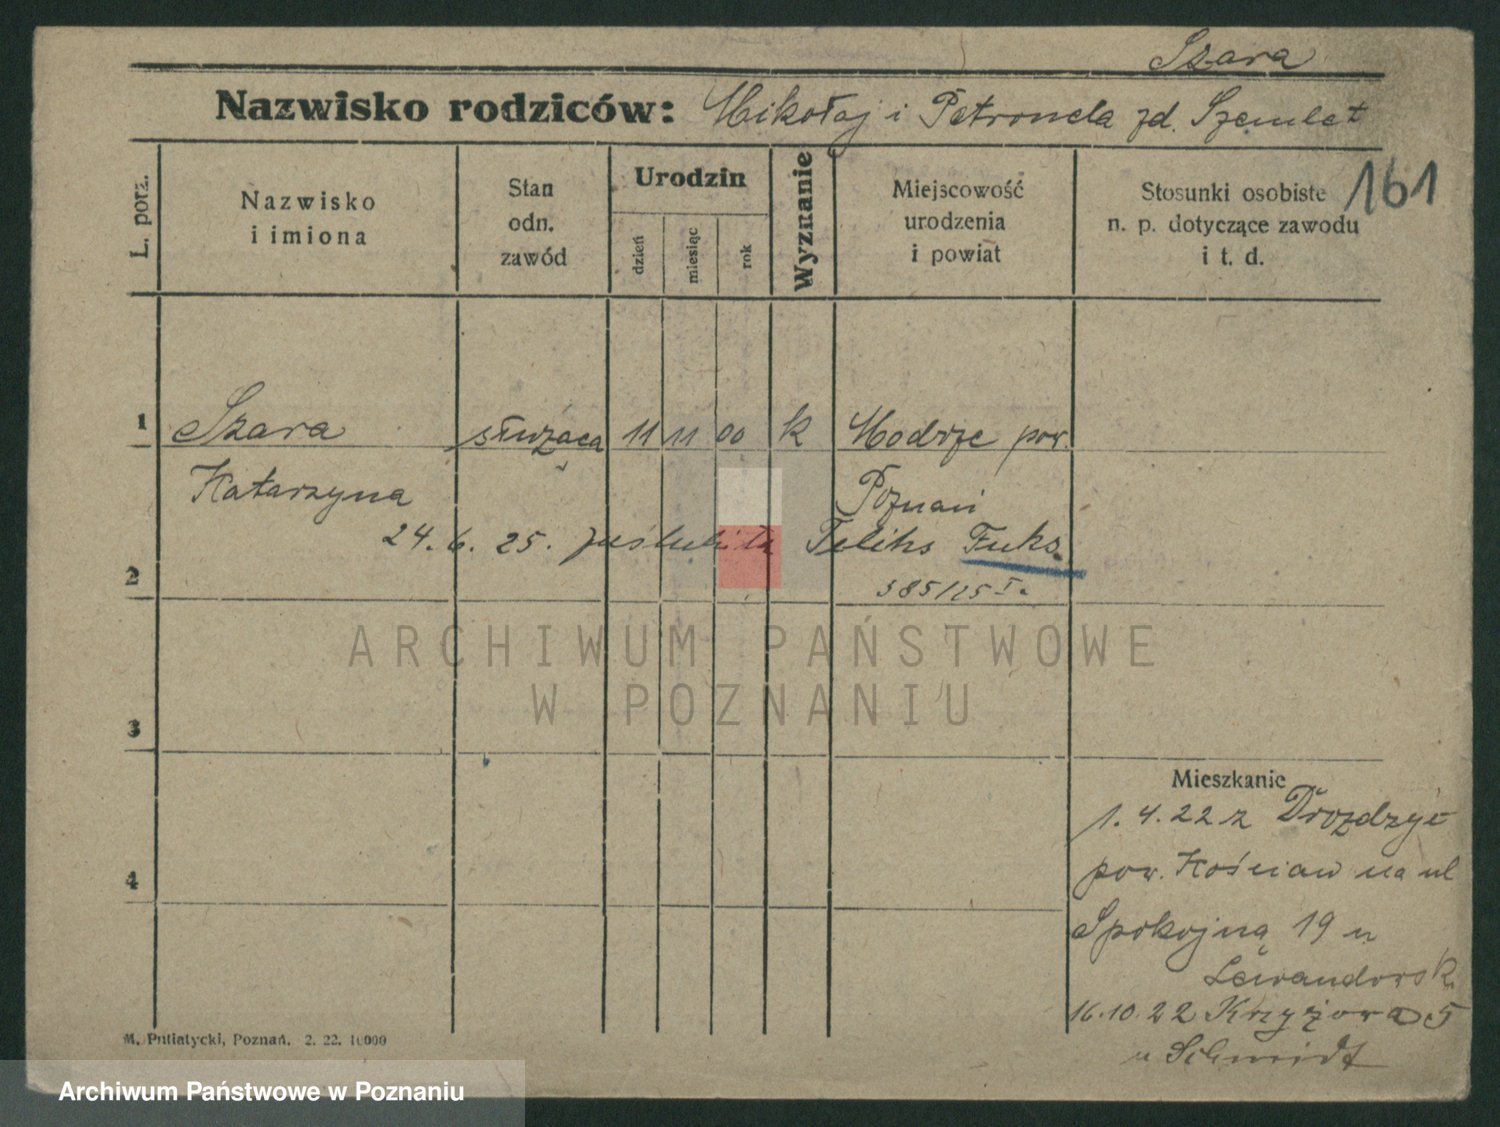 Szara
Nazwisko rodziców: Mikołaj i Petronela zd. Szemlet
161
L. porz.
Nazwisko
i imiona
Stan
odn.
zawód
Urodzin
dzień
miesiąc
rok
Wyznanie
Miejscowość
urodzenia
i powiat
Stosunki osobiste
n. p. dotyczące zawodu
i t. d.
1 Szara służąca 11 11 00 k Modrze pow.
Katarzyna Poznań
24.6.25. zaślubiła Feliks Fuks
2
385/25 I.
ARCHIWUM PAŃSTWOWE
W POZNANIU
3
Mieszkanie
1.4.22 z Drożdzyc
4
pow. Kościan na ul
Spokojną 19 u
Lewandowsk
16.10.22 Krzyżowa 5
u Schmidt
M. Putiatycki, Poznań. 2. 22. 10000
Archiwum Państwowe w Poznaniu